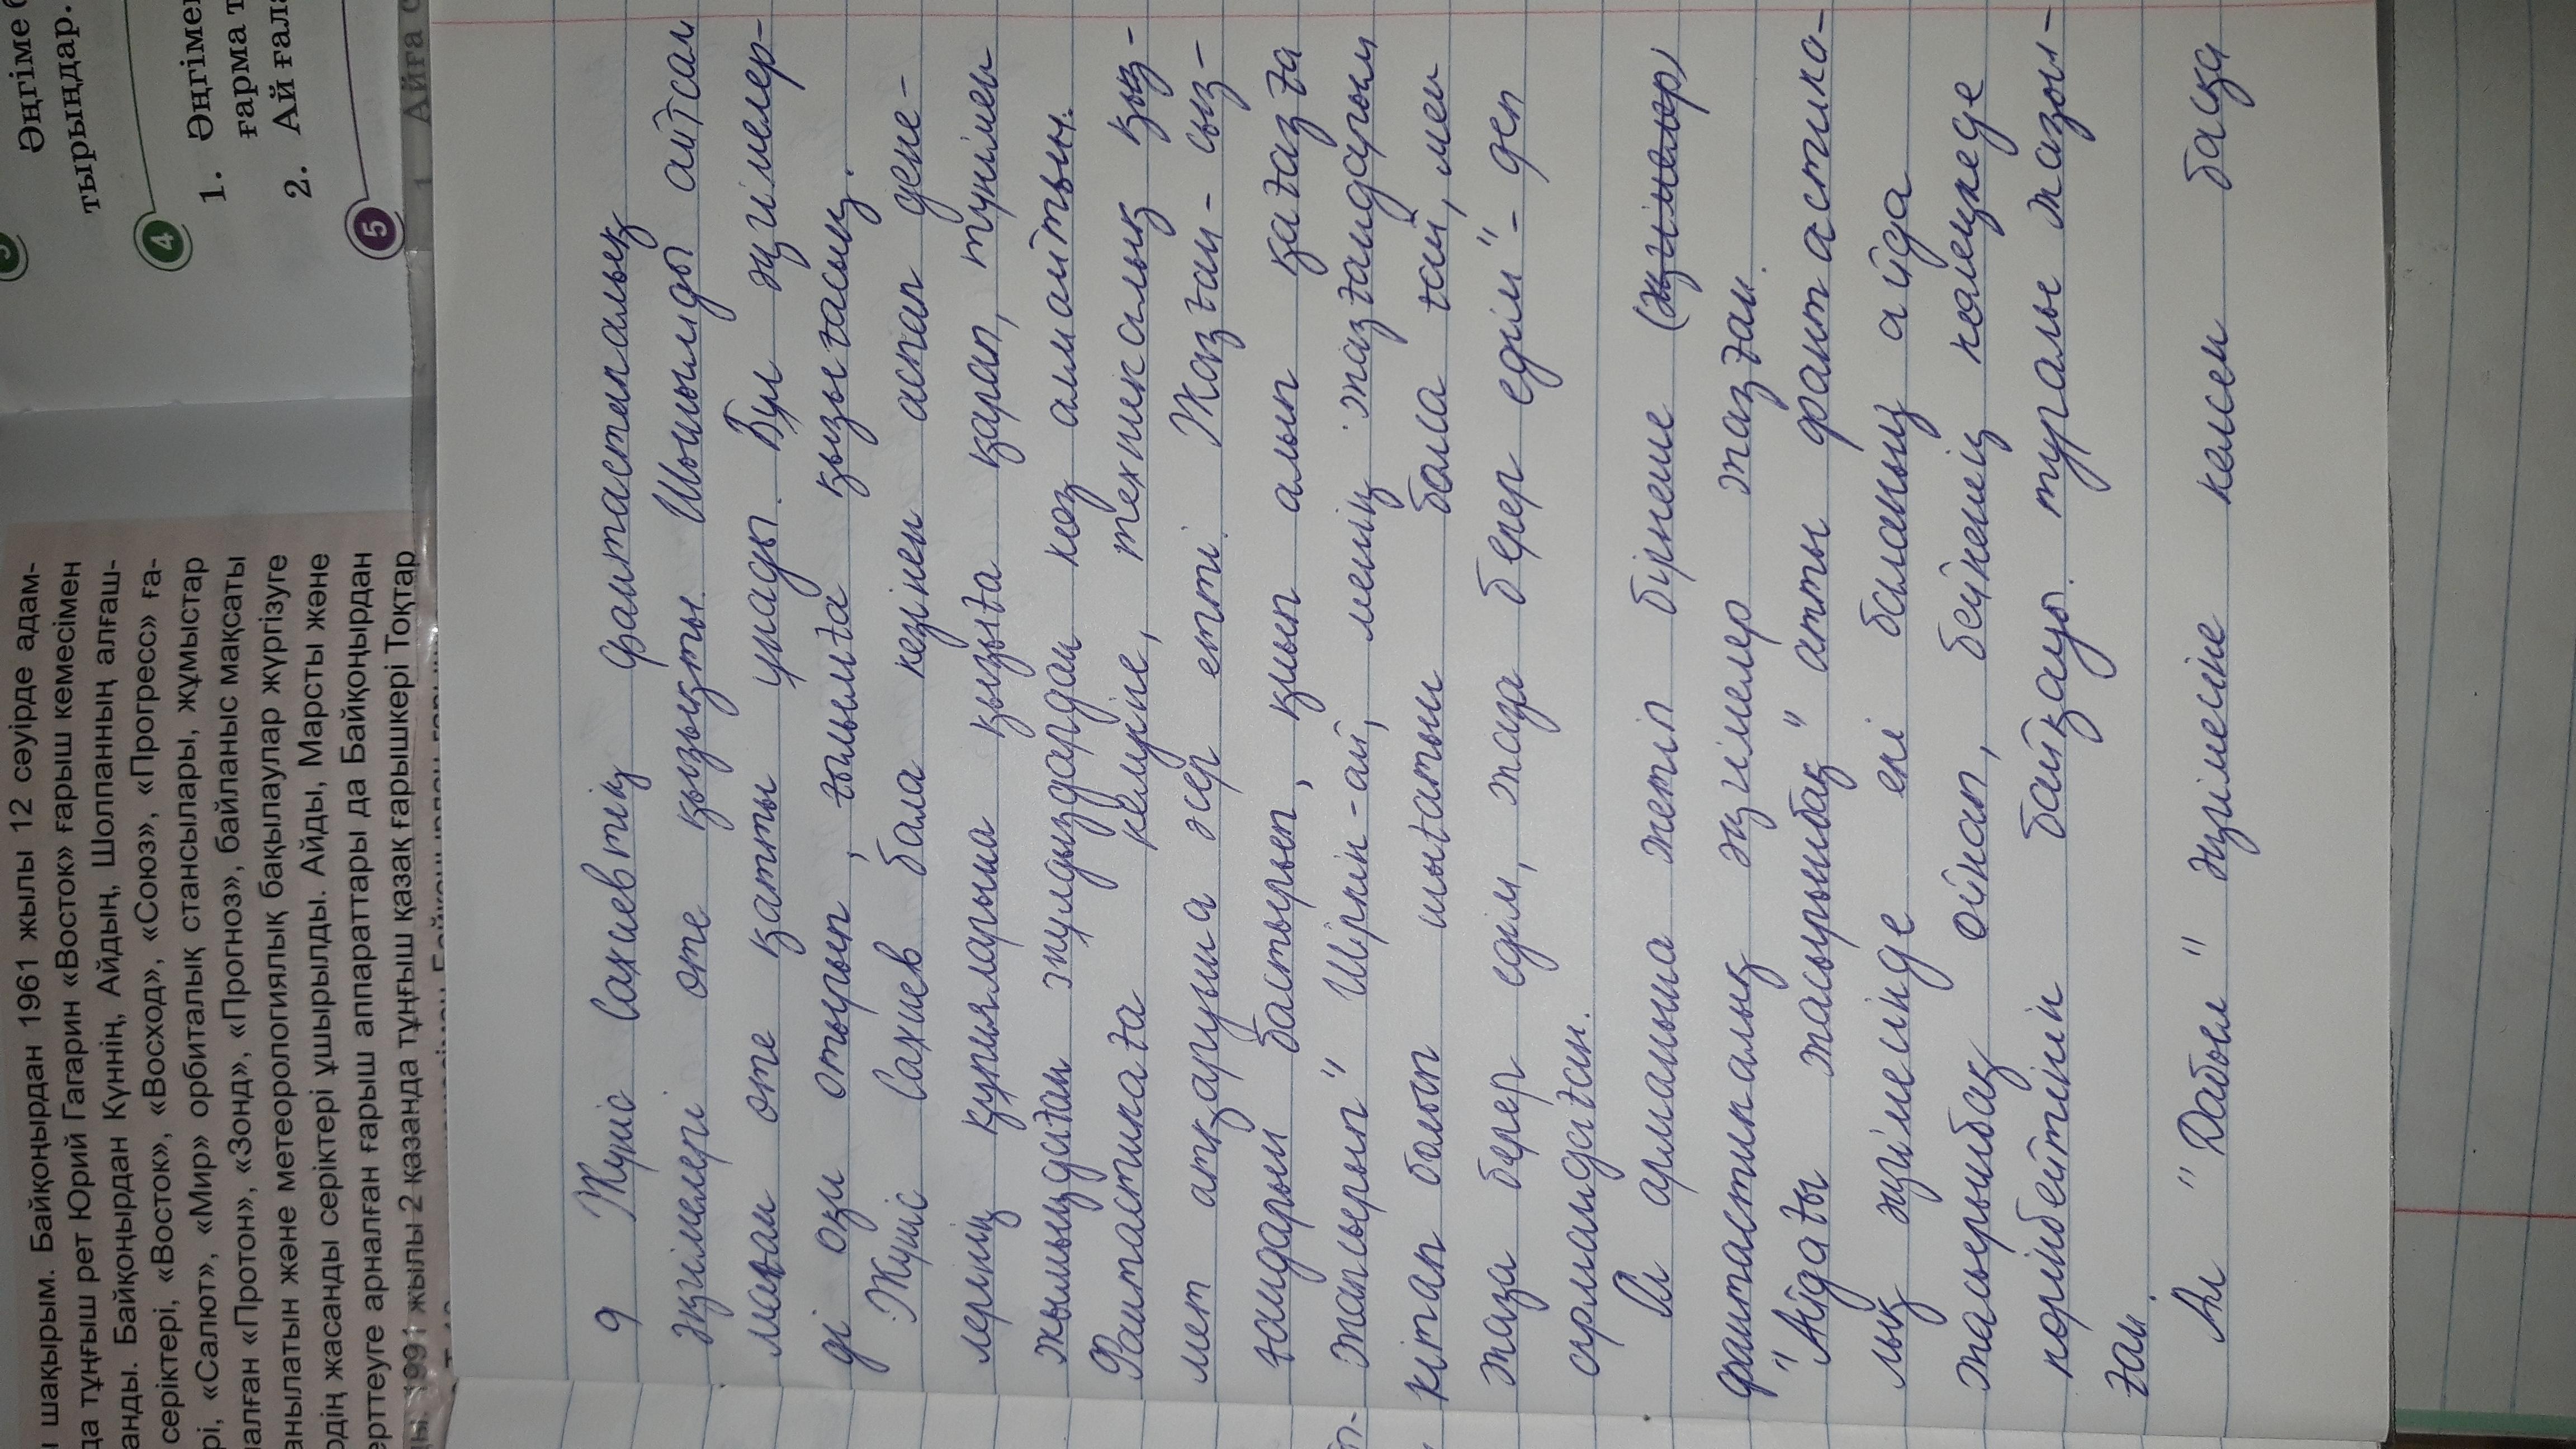 Әңгіме
тырыңдар.
4
1. Әңгімен
ғарма т
2. Ай ғала
5
1 Айға с
шақырым. Байқоңырдан 1961 жылы 12 сәуірде адам-
да тұңғыш рет Юрий Гагарин «Восток» ғарыш кемесімен
анды. Байқоңырдан Күннің, Айдың, Шолпанның алғаш-
серіктері, «Восток», «Восход», «Союз», «Прогресс» ға-
рі, «Салют», «Мир» орбиталық стансылары, жұмыстар
алған «Протон», «Зонд», «Прогноз», байланыс мақсаты
анылатын және метеорологиялық бақылаулар жүргізуге
рдің жасанды серіктері ұшырылды. Айды, Марсты және
ерттеуге арналған ғарыш аппараттары да Байқоңырдан
ды. 1991 жылы 2 қазанда тұңғыш қазақ ғарышкері Тоқтар
9 Жүніс Сахиевтің фантастикалық
әңгімелері өте қызықты. Шынымды айтсам
маған өте қатты ұнады. Бұл әңгімелер-
ді оқи отырып, ғылымға қызығасың.
Жүніс Сахиев бала кезінен аспан дене-
лерінің құпияларына қызыға қарап, түнімен
жымыңдаған жұлдыздардан көз алмайтын.
Фантастикаға келуіне, техникалық қыз-
мет атқаруына әсер етті. Жазған-сыз-
ғандарын бастырып, қиып алып қағазға
жапсырып" Шіркін-ай, менің жазғандарым
кітап болып шығатын бола ғой, мен
жаза берер едім, жаза берер едім"- деп
армандаған.
Ол арманына жетіп бірнеше (әңгімелер)
фантастикалық әңгімелер жазған.
"Айдағы жасырынбақ" атты фантастика-
лық әңгімесінде екі баланың айда
жасырынбақ ойнап, бейненің көлеңкеде
көрінбейтінін байқауы. туралы жазыл-
ған.
Ал "Дабыл" әңгімесіне келсем басқа